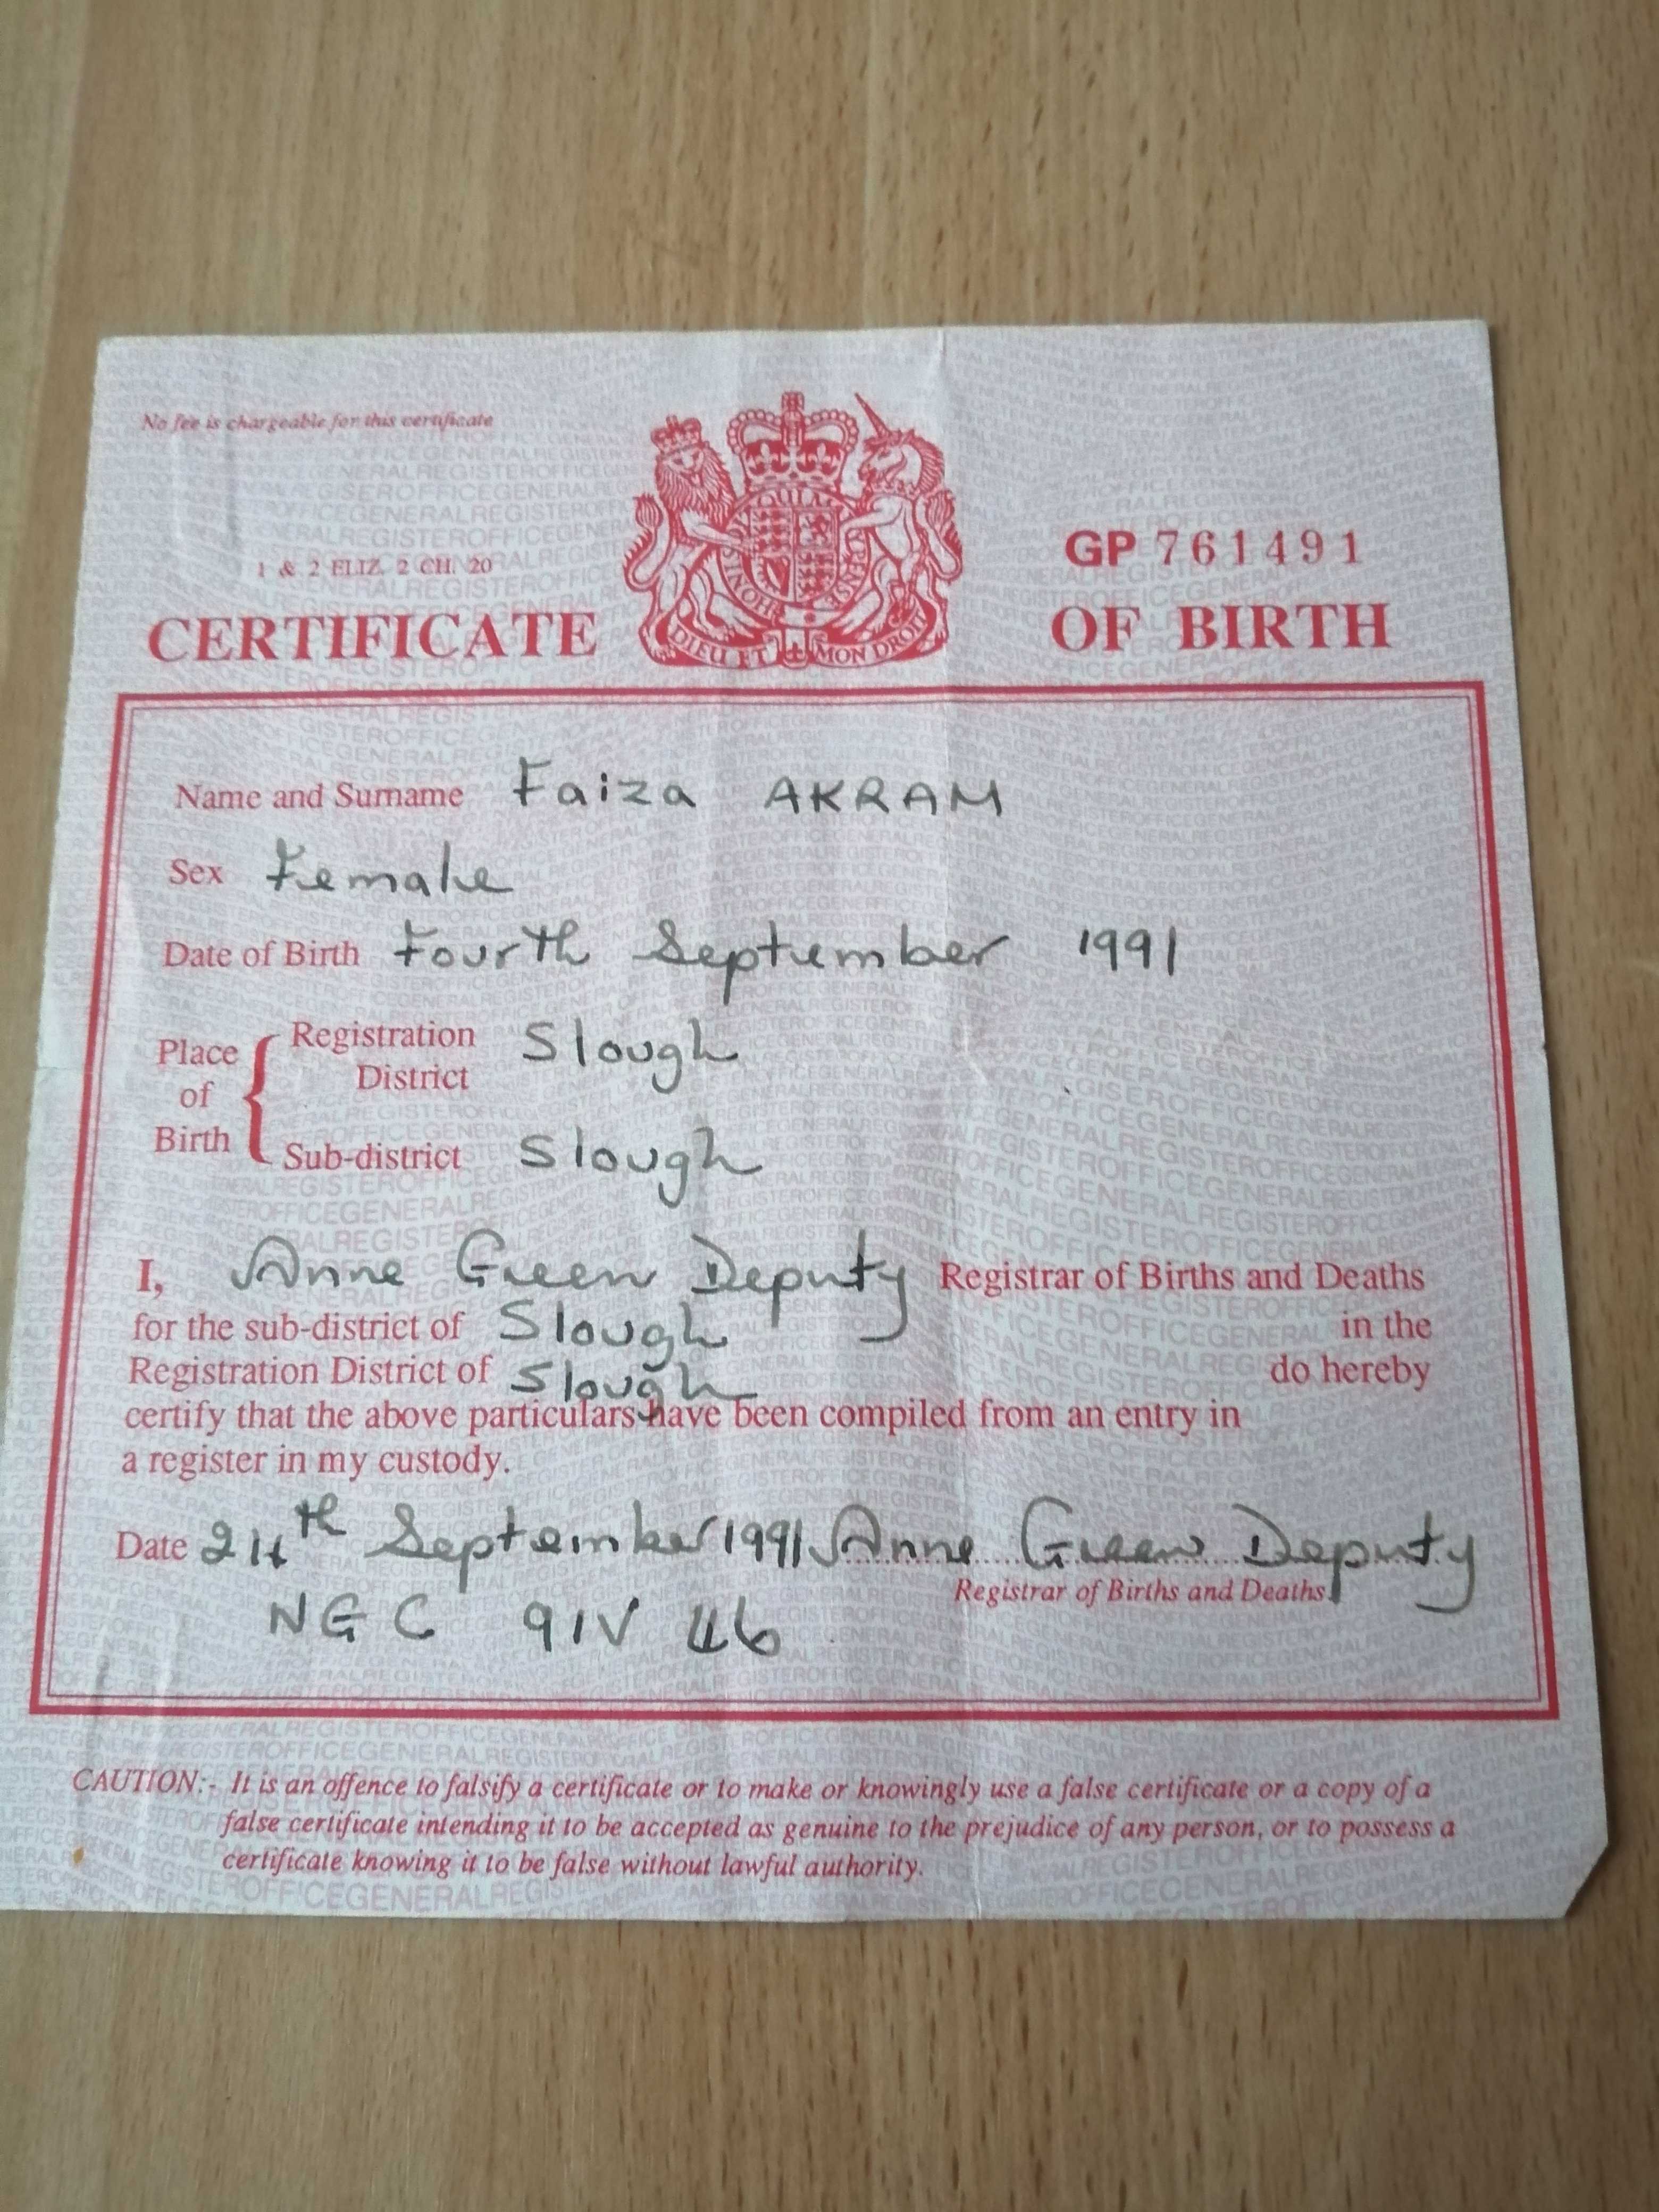 No fee is chargeable for this certificate
1 & 2 ELIZ. 2 CH. 20
DIEU ET MON DROIT
GP 761491
CERTIFICATE OF BIRTH
Name and Surname Faiza AKRAM
Sex Female
Date of Birth Fourth September 1991
Place of Birth
Registration District Slough
Sub-district Slough
I, Anne Green Deputy Registrar of Births and Deaths
for the sub-district of Slough in the
Registration District of Slough do hereby
certify that the above particulars have been compiled from an entry in
a register in my custody.
Date 24th September 1991 Anne Green Deputy
Registrar of Births and Deaths
NGC 91V 46
CAUTION:- It is an offence to falsify a certificate or to make or knowingly use a false certificate or a copy of a
false certificate intending it to be accepted as genuine to the prejudice of any person, or to possess a
certificate knowing it to be false without lawful authority.